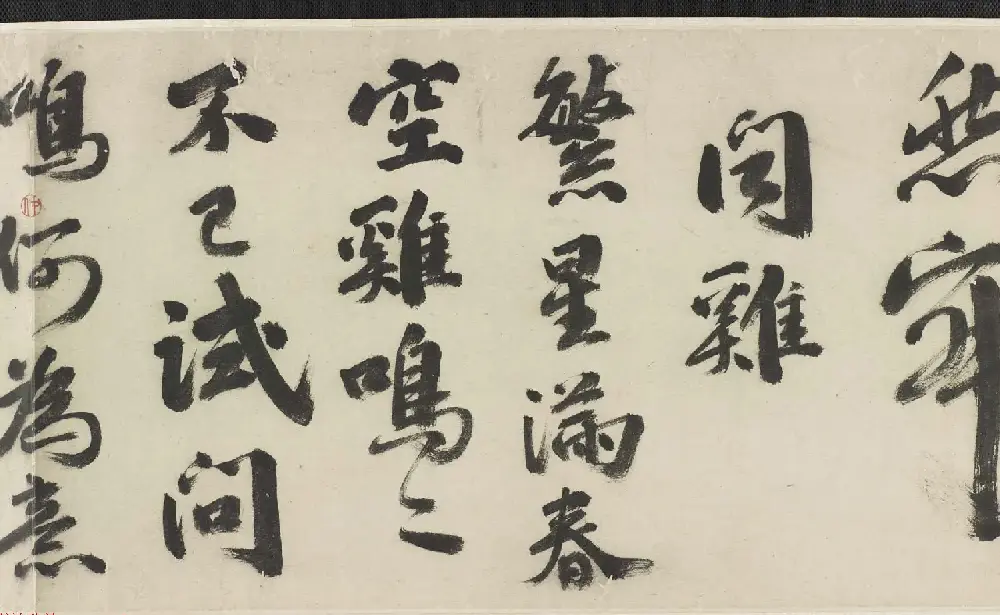 聞雞
繁星滿春
空雞鳴〻
不已試問
鳴何為意